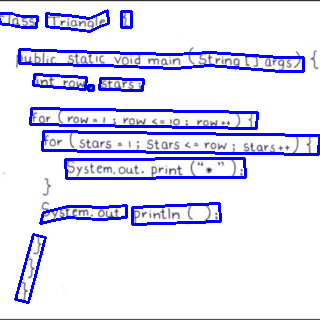 class Triangle {
public static void main (String [] args) {
int row, stars;
for (row = 1 ; row <= 10 ; row ++) {
for (stars = 1 ; stars <= row ; stars ++) {
System.out. print ("*");
}
System.out. println ( );
}
}
}